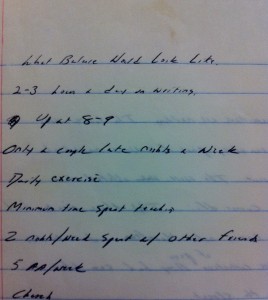 What Balance Would Look Like.
2-3 hours a day on writing.
Up at 8-9
Only a couple late nights a week
Daily exercise
Minimum time spent
2 nights/week spent w/ other friends
5 /week
Church